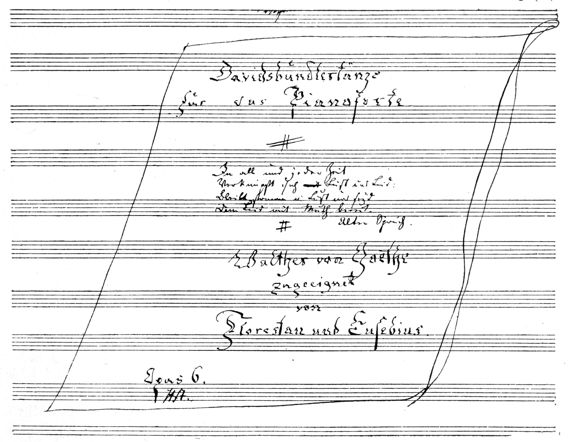 Davidsbündlertänze
für das Pianoforte
In all und jeder Zeit
Verknüpft sich Lust und Leid:
Bleibt fromm in Lust und seyd
Dem Leid mit Muth bereit.
Alter Spruch.
Walther von Goethe
zugeeignet
von
Florestan und Eusebius.
Opus 6.